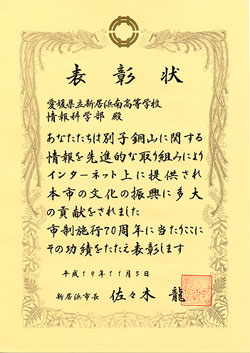 表彰状
愛媛県立新居浜南高等学校
情報科学部 殿
あなたたちは別子銅山に関する
情報を先進的な取り組みにより
インターネット上に提供され
本市の文化の振興に多大
の貢献をされました
市制施行70周年に当たりここに
その功績をたたえ表彰します
平成19年11月5日
新居浜市長 佐々木 龍